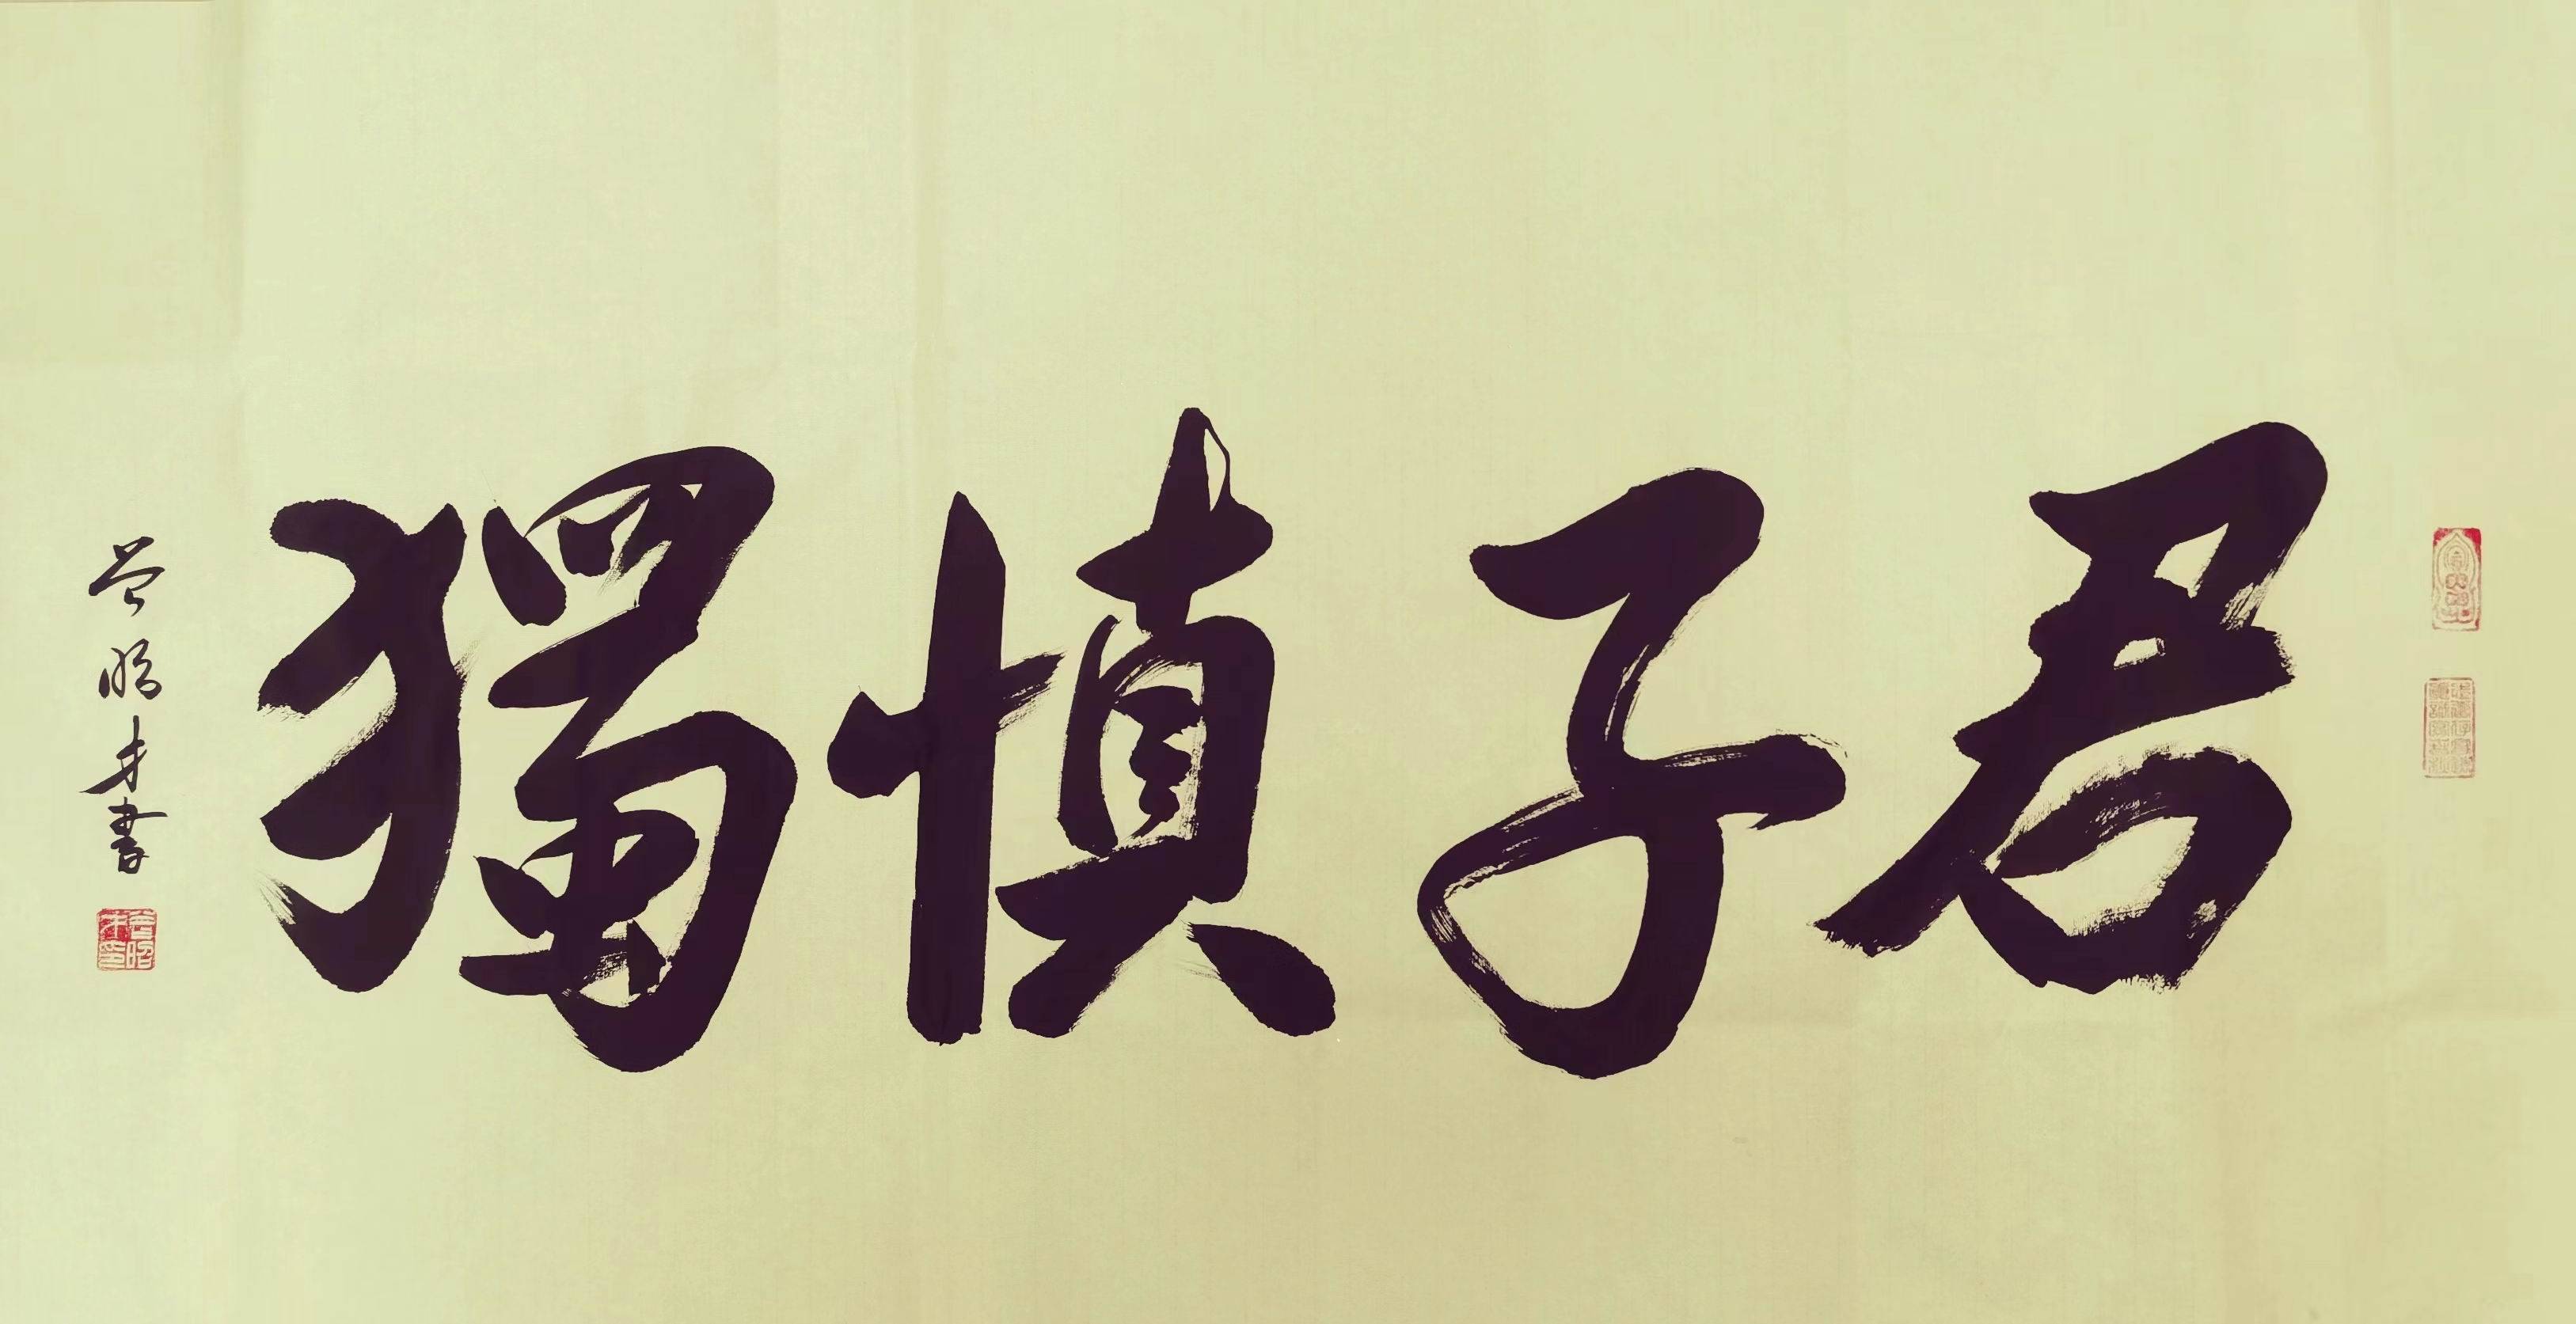 君子慎獨
昭才書